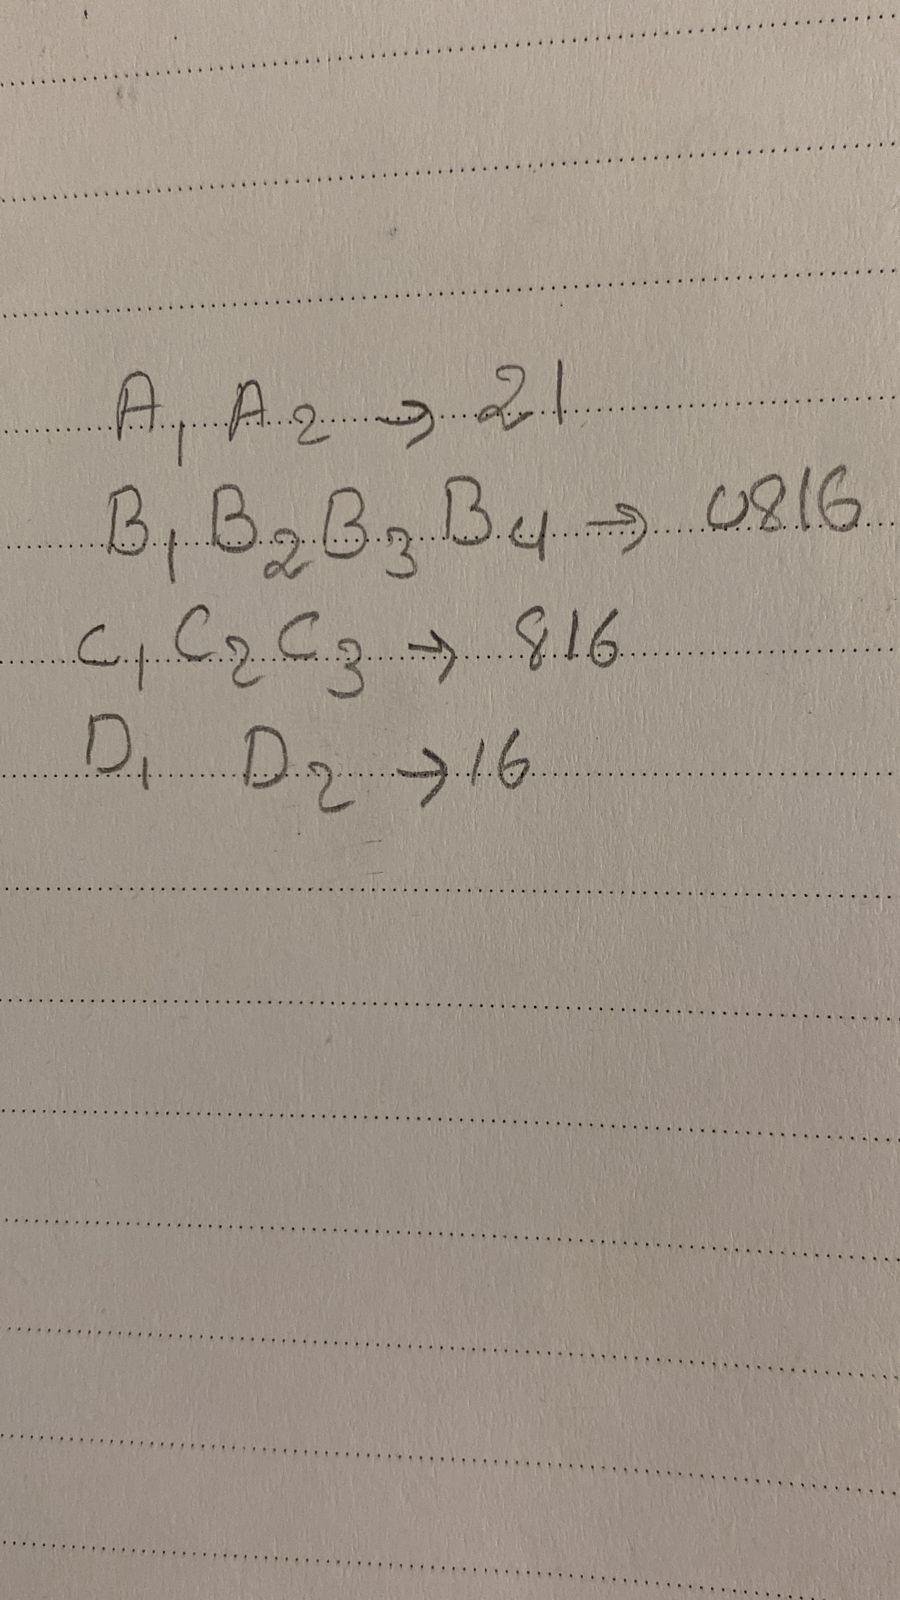 A₁ A₂ → 21
B₁ B₂ B₃ B₄ → 0816
C₁ C₂ C₃ → 816
D₁ D₂ → 16